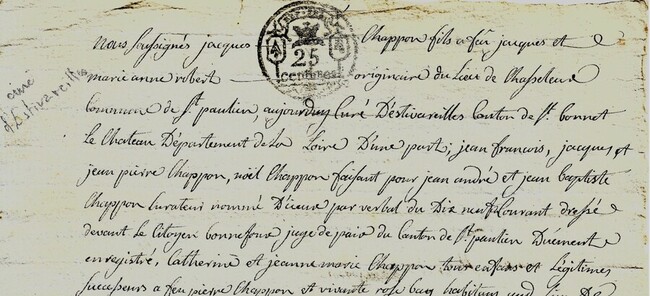 Nous soussignés jacques Chappon fils a feu jacques et
marie anne robert originaire du Lieu de Chasseleuc
Commune de St. paulien, aujourdhuy Curé Destivareilles Canton de St. bonnet
Le Chateau Département de La Loire D'une part; jean francois, jacques, et
jean pierre Chappon, noël Chappon faisant pour jean andré et jean baptiste
Chappon Curateur nommé D'iceux par verbal du Dix neuf Courant dressé
devant Le Citoyen bonnefoux juge de paix du Canton de St. paulien Duëment
enregistré, Catherine et jeanne marie Chappon tous enfans et Légitimes
successeurs a feu pierre Chappon et vivante rose
25
centimes
curé
d'Estivareilles